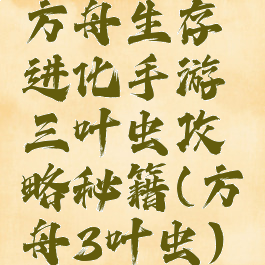 方舟生存
进化手游
三叶虫攻
略秘籍(方
舟3叶虫)